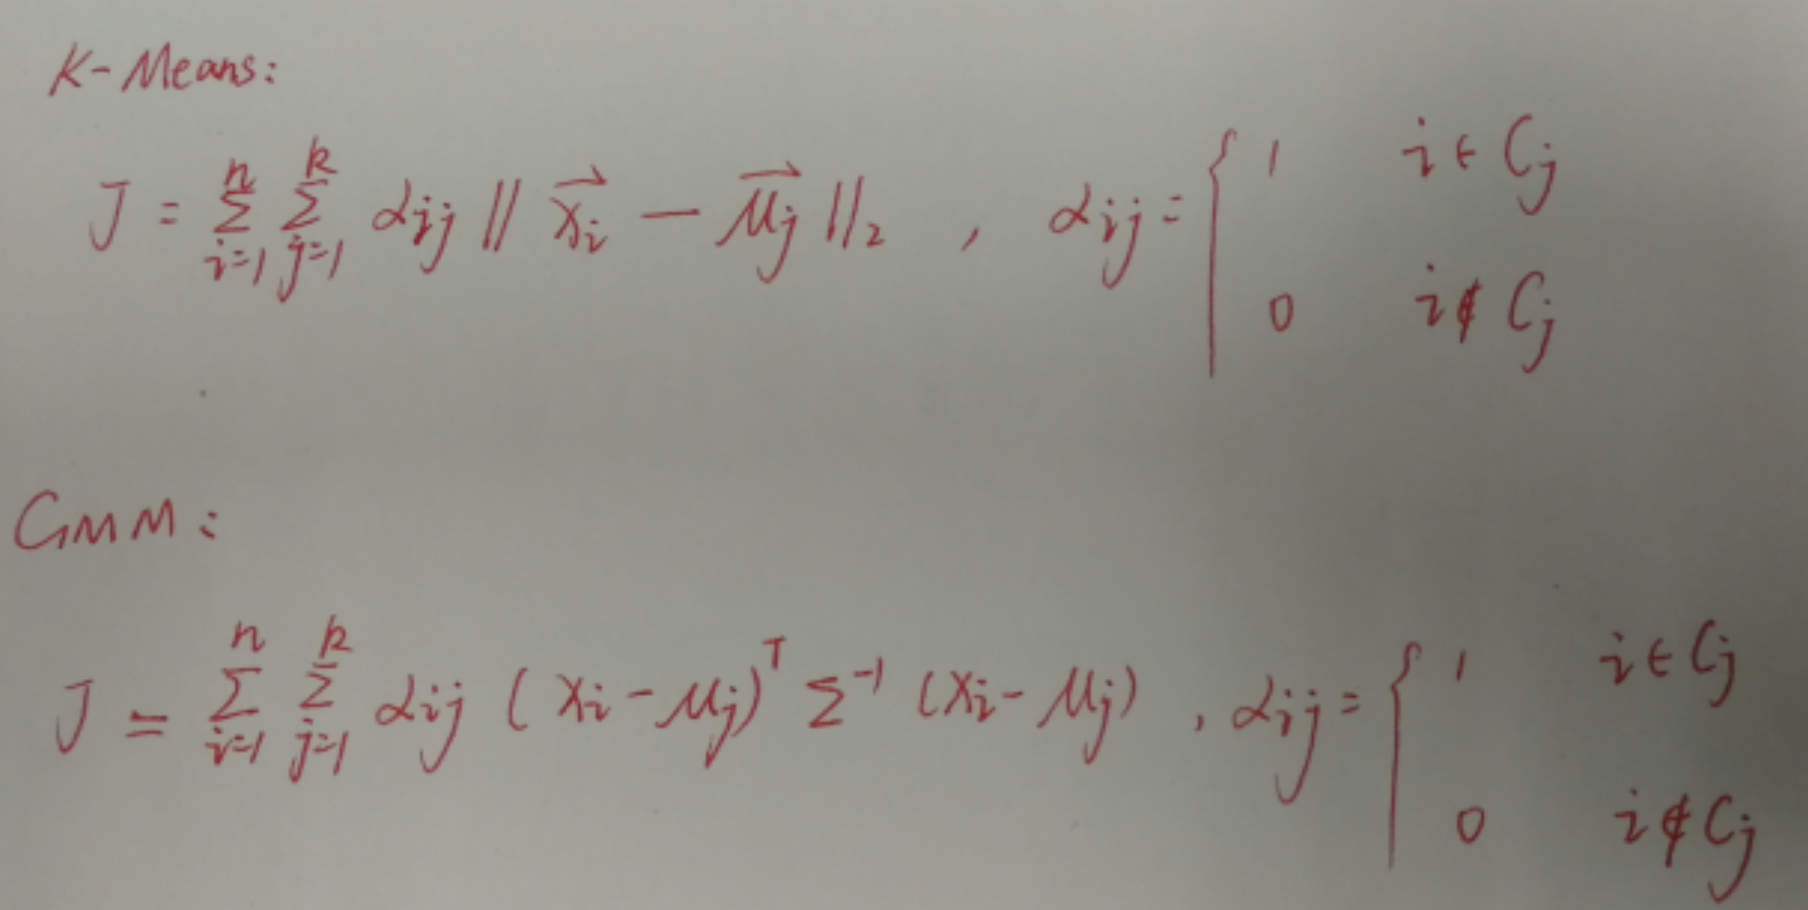 K-Means:
J = \sum_{i=1}^{n} \sum_{j=1}^{k} α_{ij} || \vec{x_i} - \vec{μ_j} ||_2 , α_{ij} = { 1 i ∈ C_j
0 i ∉ C_j
GMM:
J = \sum_{i=1}^{n} \sum_{j=1}^{k} α_{ij} (x_i - μ_j)^T Σ^{-1} (x_i - μ_j) , α_{ij} = { 1 i ∈ C_j
0 i ∉ C_j